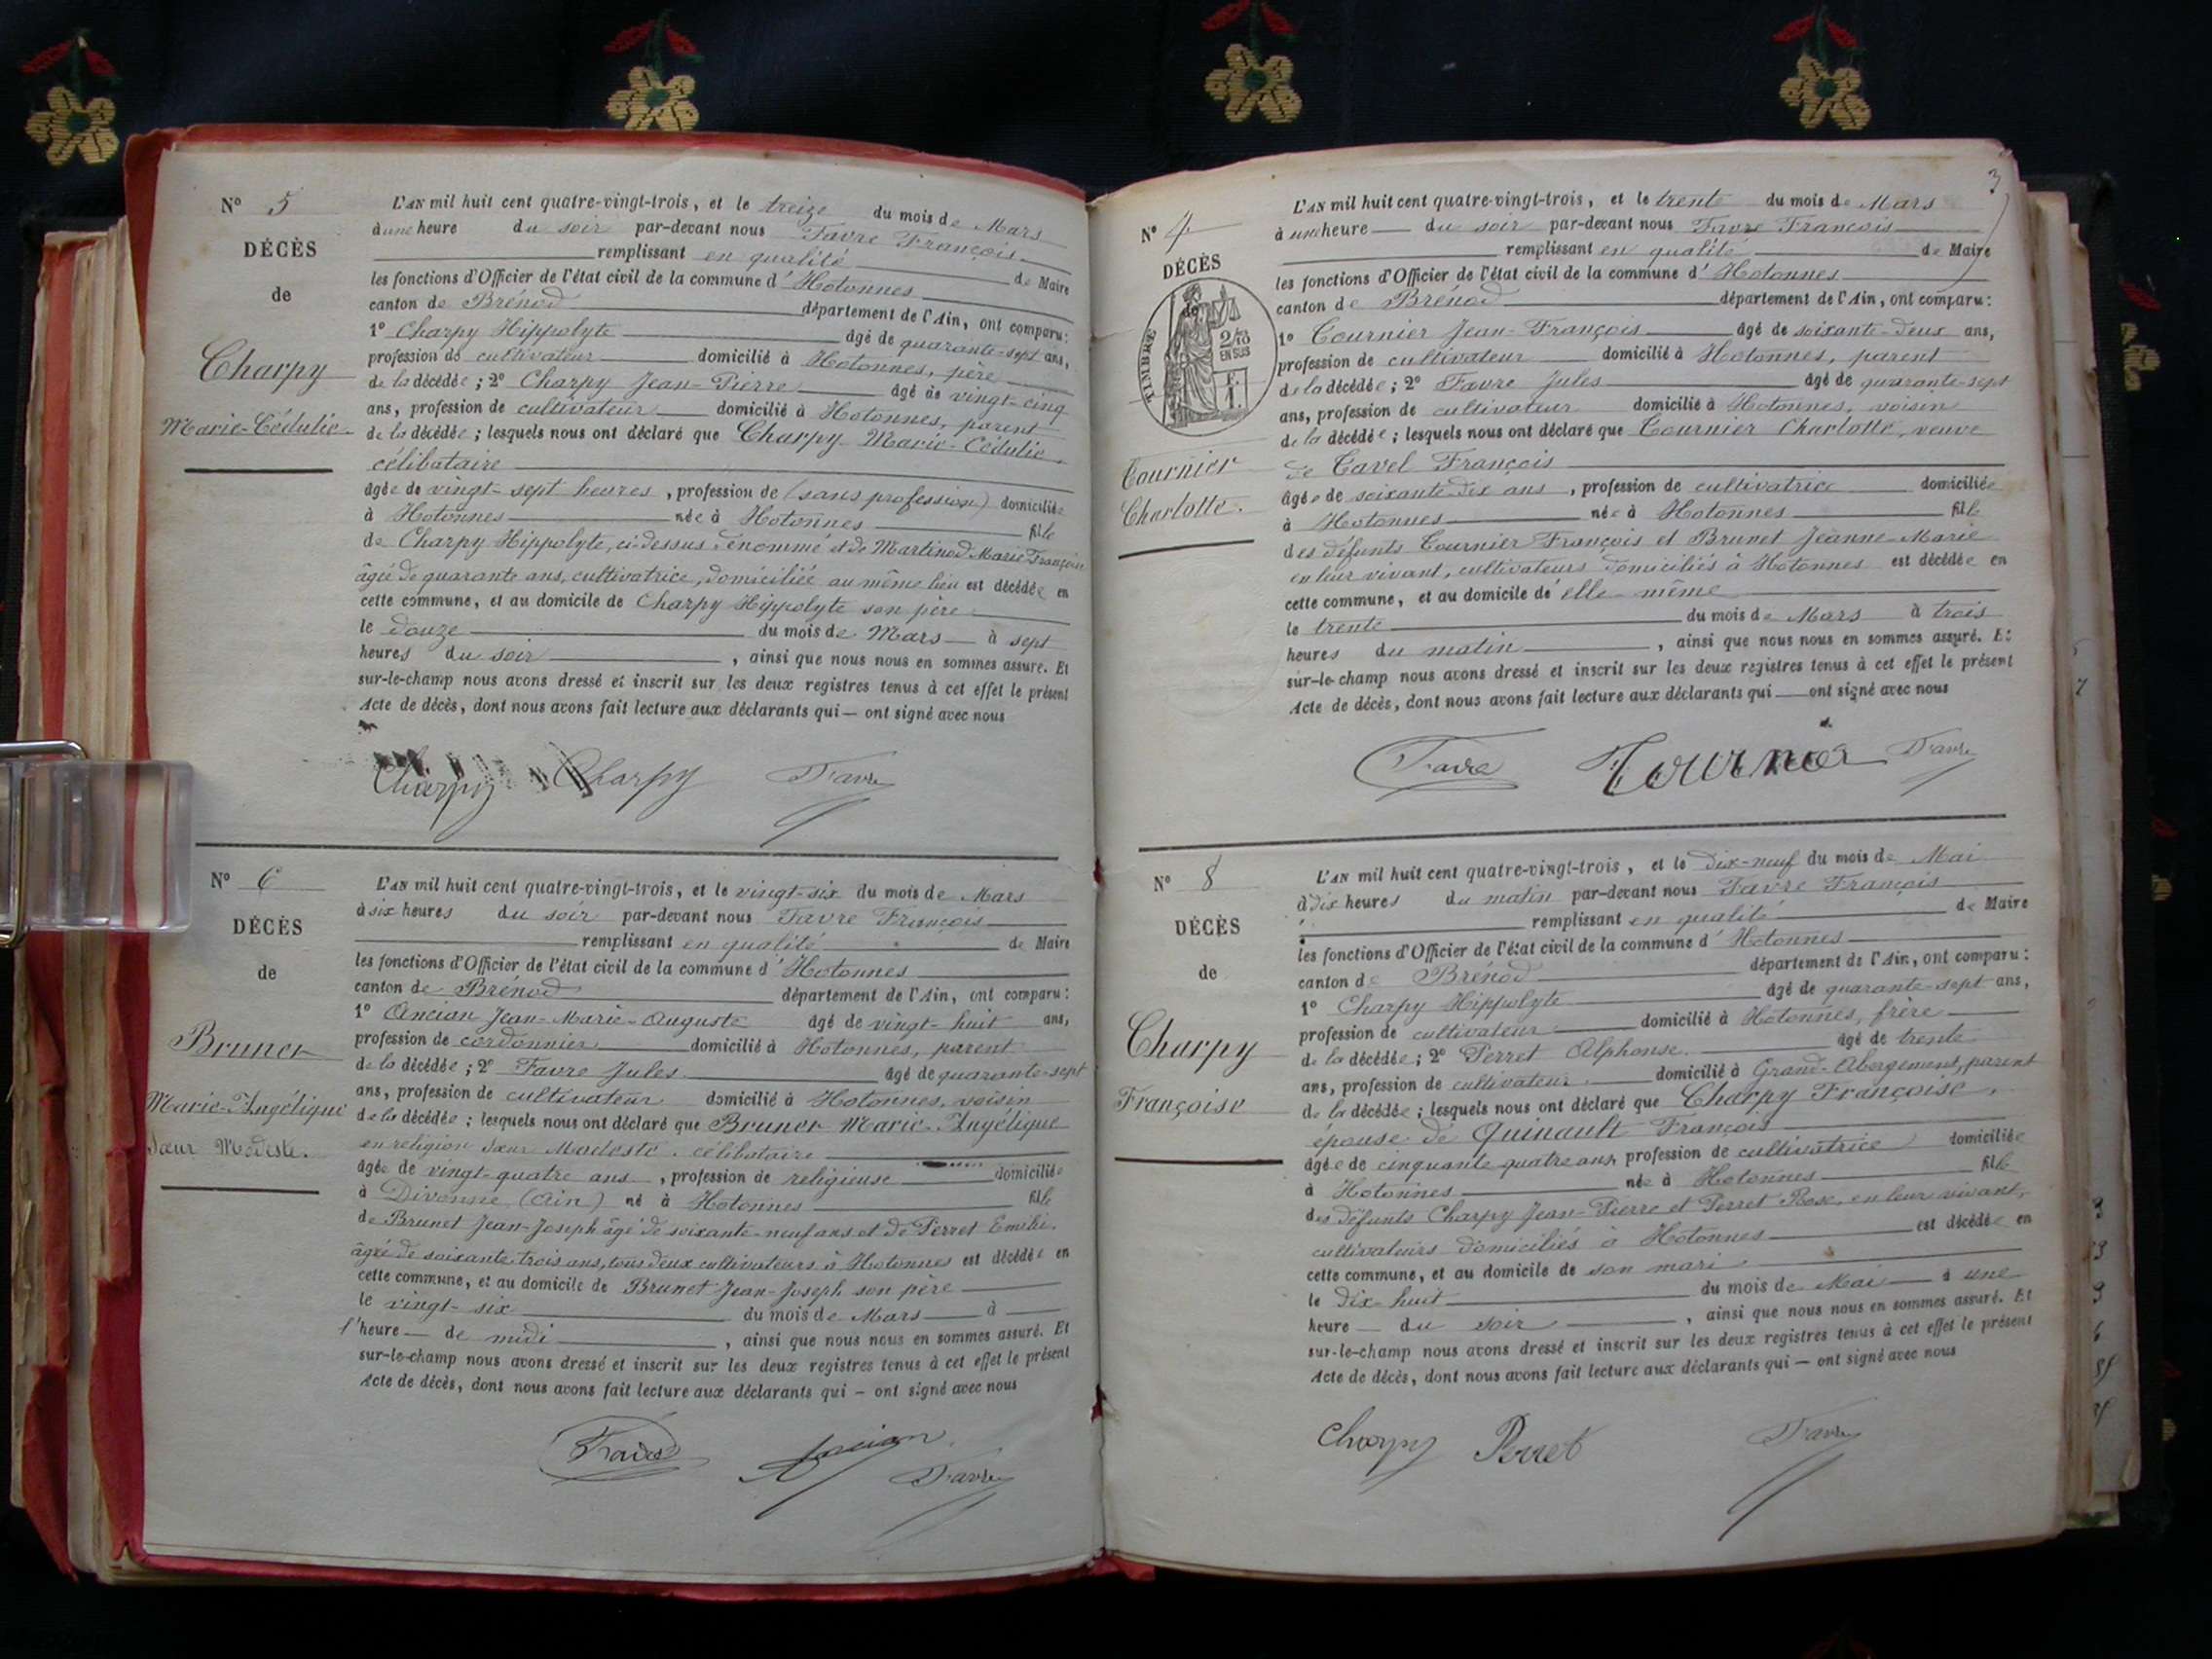 N° 5
DÉCÈS
de
Charpy
Marie-Cédulie.
L'AN mil huit cent quatre-vingt-trois, et le treize du mois de Mars
à une heure du soir par-devant nous Favre François
remplissant en qualité de Maire
les fonctions d'Officier de l'état civil de la commune d'Hotonnes
canton de Brénod département de l'Ain, ont comparu:
1° Charpy Hippolyte âgé de quarante-sept ans,
profession de cultivateur domicilié à Hotonnes, père
de la décédée; 2° Charpy Jean-Pierre âgé de vingt-cinq
ans, profession de cultivateur domicilié à Hotonnes, parent
de la décédée; lesquels nous ont déclaré que Charpy Marie-Cédulie,
célibataire
âgée de vingt-sept heures, profession de (sans profession) domiciliée
à Hotonnes née à Hotonnes fille
de Charpy Hippolyte, ci-dessus dénommé et de Martinod Marie Françoise
âgée de quarante ans, cultivatrice, domiciliée au même lieu est décédée en
cette commune, et au domicile de Charpy Hippolyte son père
le douze du mois de Mars à sept
heures du soir, ainsi que nous nous en sommes assuré. Et
sur-le-champ nous avons dressé et inscrit sur les deux registres tenus à cet effet le présent
Acte de décès, dont nous avons fait lecture aux déclarants qui — ont signé avec nous
Charpy Charpy Favre
N° 6
DÉCÈS
de
Bruner
Marie-Angélique
Sœur Modeste.
L'AN mil huit cent quatre-vingt-trois, et le vingt-six du mois de Mars
à six heures du soir par-devant nous Favre François
remplissant en qualité de Maire
les fonctions d'Officier de l'état civil de la commune d'Hotonnes
canton de Brénod département de l'Ain, ont comparu:
1° Ancian Jean-Marie-Auguste âgé de vingt-huit ans,
profession de cordonnier domicilié à Hotonnes, parent
de la décédée; 2° Favre Jules âgé de quarante-sept
ans, profession de cultivateur domicilié à Hotonnes, voisin
de la décédée; lesquels nous ont déclaré que Bruner Marie-Angélique
en religion sœur Modeste, célibataire
âgée de vingt-quatre ans, profession de religieuse domiciliée
à Divonne (Ain) né à Hotonnes fille
de Brunet Jean-Joseph âgé de soixante-neuf ans et de Perret Emilie
âgée de soixante-trois ans, tous deux cultivateurs à Hotonnes est décédée en
cette commune, et au domicile de Brunet Jean-Joseph son père
le vingt-six du mois de Mars à
l'heure de midi, ainsi que nous nous en sommes assuré. Et
sur-le-champ nous avons dressé et inscrit sur les deux registres tenus à cet effet le présent
Acte de décès, dont nous avons fait lecture aux déclarants qui — ont signé avec nous
Favre Ancian Favre
3
N° 4
DÉCÈS
de
TIMBRE
2/10
EN SUS
Tournier
Charlotte.
L'AN mil huit cent quatre-vingt-trois, et le trente du mois de Mars
à une heure du soir par-devant nous Favre François
remplissant en qualité de Maire
les fonctions d'Officier de l'état civil de la commune d'Hotonnes
canton de Brénod département de l'Ain, ont comparu:
1° Tournier Jean-François âgé de soixante-deux ans,
profession de cultivateur domicilié à Hotonnes, parent
de la décédée; 2° Favre Jules âgé de quarante-sept
ans, profession de cultivateur domicilié à Hotonnes, voisin
de la décédée; lesquels nous ont déclaré que Tournier Charlotte, veuve
de Tavel François
âgée de soixante-dix ans, profession de cultivatrice domiciliée
à Hotonnes née à Hotonnes fille
des défunts Tournier François et Brunet Jeanne-Marie
en leur vivant, cultivateurs domiciliés à Hotonnes est décédée en
cette commune, et au domicile de elle-même
le trente du mois de Mars à trois
heures du matin, ainsi que nous nous en sommes assuré. Et
sur-le-champ nous avons dressé et inscrit sur les deux registres tenus à cet effet le présent
Acte de décès, dont nous avons fait lecture aux déclarants qui — ont signé avec nous
Favre Tournier Favre
N° 8
DÉCÈS
de
Charpy
Françoise
L'AN mil huit cent quatre-vingt-trois, et le dix-neuf du mois de Mai
à dix heures du matin par-devant nous Favre François
remplissant en qualité de Maire
les fonctions d'Officier de l'état civil de la commune d'Hotonnes
canton de Brénod département de l'Ain, ont comparu:
1° Charpy Hippolyte âgé de quarante-sept ans,
profession de cultivateur domicilié à Hotonnes, frère
de la décédée; 2° Perret Alphonse âgé de trente
ans, profession de cultivateur domicilié à Grand-Abergement, parent
de la décédée; lesquels nous ont déclaré que Charpy Françoise,
épouse de Quinault François
âgée de cinquante quatre ans, profession de cultivatrice domiciliée
à Hotonnes née à Hotonnes fille
des défunts Charpy Jean-Pierre et Perret Rose, en leur vivant,
cultivateurs domiciliés à Hotonnes est décédée en
cette commune, et au domicile de son mari
le dix-huit du mois de Mai à une
heure du soir, ainsi que nous nous en sommes assuré. Et
sur-le-champ nous avons dressé et inscrit sur les deux registres tenus à cet effet le présent
Acte de décès, dont nous avons fait lecture aux déclarants qui — ont signé avec nous
Charpy Perret Favre